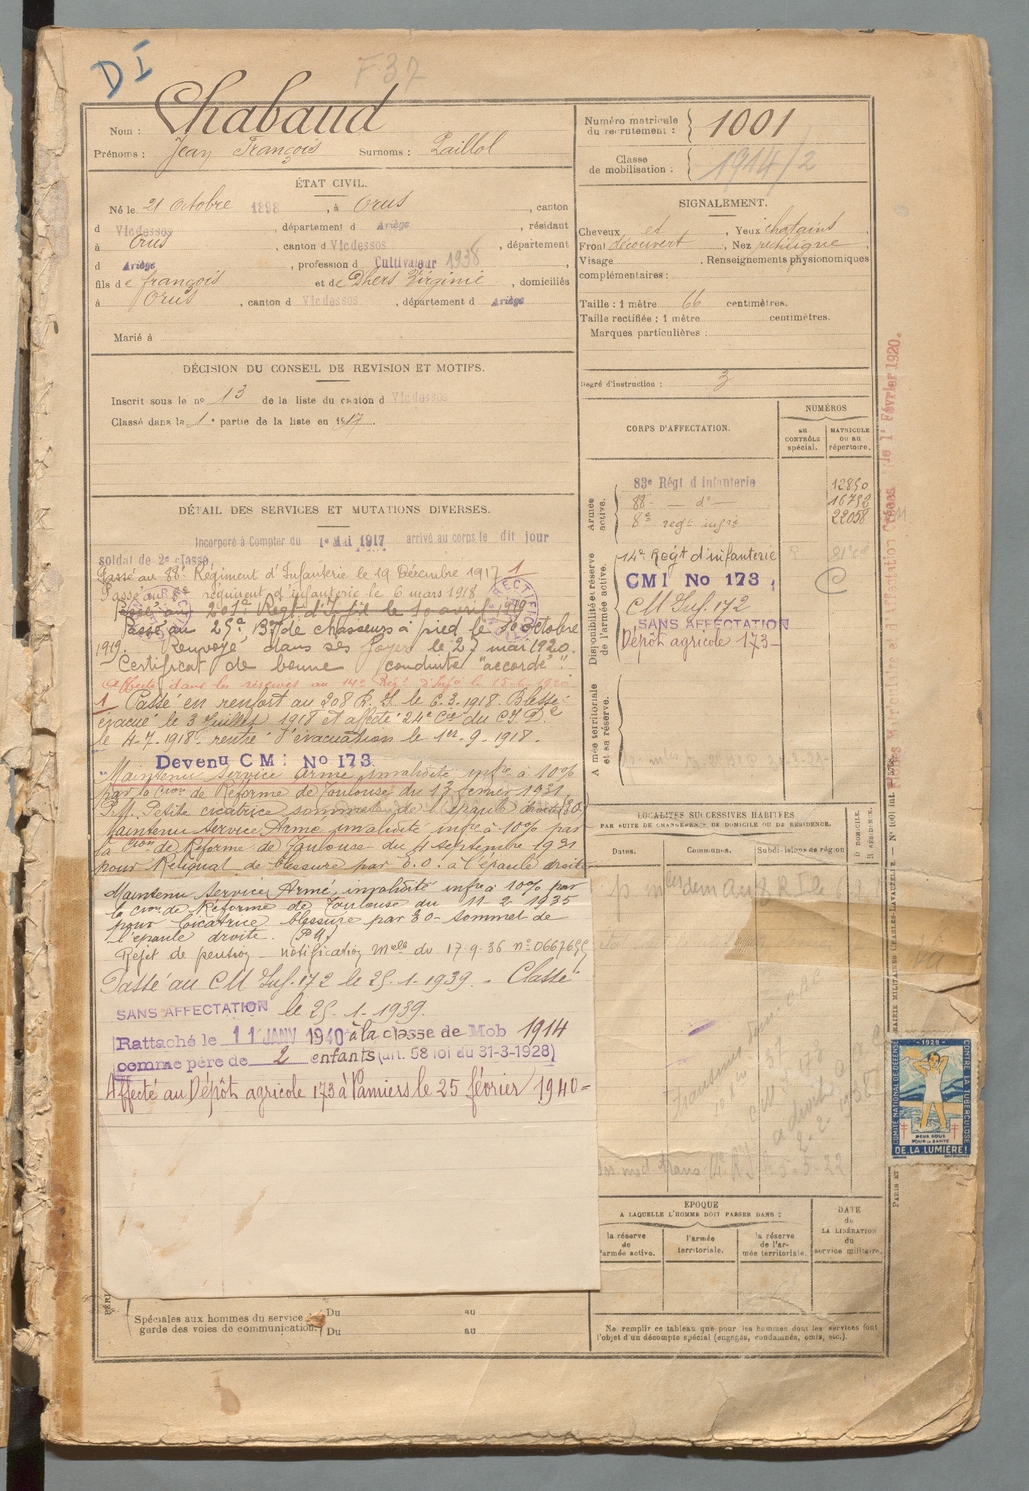 DI
F37
Nom : Chabaud
Prénoms : Jean François Surnoms : Paillol
Numéro matricule du recrutement : 1001
Classe de mobilisation : 1914/2
ÉTAT CIVIL.
Né le 21 Octobre 1898, à Orus, canton
d Vicdessos, département d Ariège, résidant
à Orus, canton d Vicdessos, département
d Ariège, profession d Cultivateur 1938
fils de François et de Dhers Virginie, domiciliés
à Orus, canton d Vicdessos, département d Ariège
Marié à
SIGNALEMENT.
Cheveux et, Yeux chatains
Front découvert, Nez rectiligne,
Visage . Renseignements physionomiques
complémentaires :
Taille : 1 mètre 66 centimètres.
Taille rectifiée : 1 mètre centimètres.
Marques particulières :
Degré d'instruction : 3
DÉCISION DU CONSEIL DE REVISION ET MOTIFS.
Inscrit sous le no 13 de la liste du canton d Vicdessos
Classé dans la 1e partie de la liste en 1917.
DÉTAIL DES SERVICES ET MUTATIONS DIVERSES.
Incorporé à Compter du 1er Mai 1917 arrivé au corps le dit jour
soldat de 2e classe
Passé au 88e Régiment d'Infanterie le 19 Décembre 1917 1
Passé au 8e régiment d'infanterie le 6 mars 1918
Passé au 201e Regt d'Infie le 10 avril 1919
Passé au 25e Bon de chasseurs à pied le 30 octobre
1919. Renvoyé dans ses foyers le 27 mai 1920.
Certificat de bonne conduite "accordé".
Affecté dans les réserves au 14e Regt d'Infie le 15-6-1920
1 Passé en renfort au 208 R.I. le 6.3.1918. Blessé
évacué le 3 Juillet 1918 et affecté 24e Cie du
le 4-7-1918. rentré d'évacuation le 1er-9-1918.
Devenu CMI No 173
Maintenu service Armé invalidité infre à 10%
par la Cion de Réforme de Toulouse du 13 février 1931.
P.M. Petite cicatrice sommet de l'épaule droite E.O.
Maintenu Service Armé invalidité infre à 10% par
la Cion de Réforme de Toulouse du 4 septembre 1931
pour Reliquat de blessure par E.O. à l'épaule droite
Maintenu Service Armé, invalidité infre à 10% par
la Cion de Réforme de Toulouse du 11-2-1935
pour Cicatrice blessure par E.O. sommet de
l'épaule droite. P.M.
Rejet de pension - notification Melle du 17-9-36 no
Passé au CM Inf. 172 le 25-1-1939. - Classé
SANS AFFECTATION le 25-1-1939.
Rattaché le 11 JANV 1940 à la classe de Mob 1914
comme père de 2 enfants (art. 58 loi du 31-3-1928)
Affecté au Dépôt agricole 173 à Pamiers le 25 février 1940 =
CORPS D'AFFECTATION.
NUMÉROS
au CONTRÔLE spécial.
MATRICULE ou au répertoire.
Armée active.
83e Régt d'infanterie 12850
88 - do - 16792
8e regt infie 22058
Disponibilité et réserve de l'armée active.
14e Regt d'infanterie
CMI No 173
CM Inf. 172
SANS AFFECTATION
Dépôt agricole 173
Armée territoriale et sa réserve.
LOCALITÉS SUCCESSIVES HABITÉES
PAR SUITE DE CHANGEMENTS DE DOMICILE OU DE RÉSIDENCE.
Dates.
Communes.
Subdivisions de région
D DOMICILE.
R RÉSIDENCE.
ÉPOQUE
A LAQUELLE L'HOMME DOIT PASSER DANS :
la réserve de l'armée active.
l'armée territoriale.
la réserve de l'armée territoriale.
DATE de LA LIBÉRATION du service militaire.
Spéciales aux hommes du service de garde des voies de communication.
Du au
Du au
Ne remplir ce tableau que pour les hommes dont les services font
l'objet d'un décompte spécial (engagés, condamnés, omis, etc.).
COMITÉ NATIONAL DE DÉFENSE
- 1929 -
CONTRE LA TUBERCULOSE
DE LA LUMIÈRE!